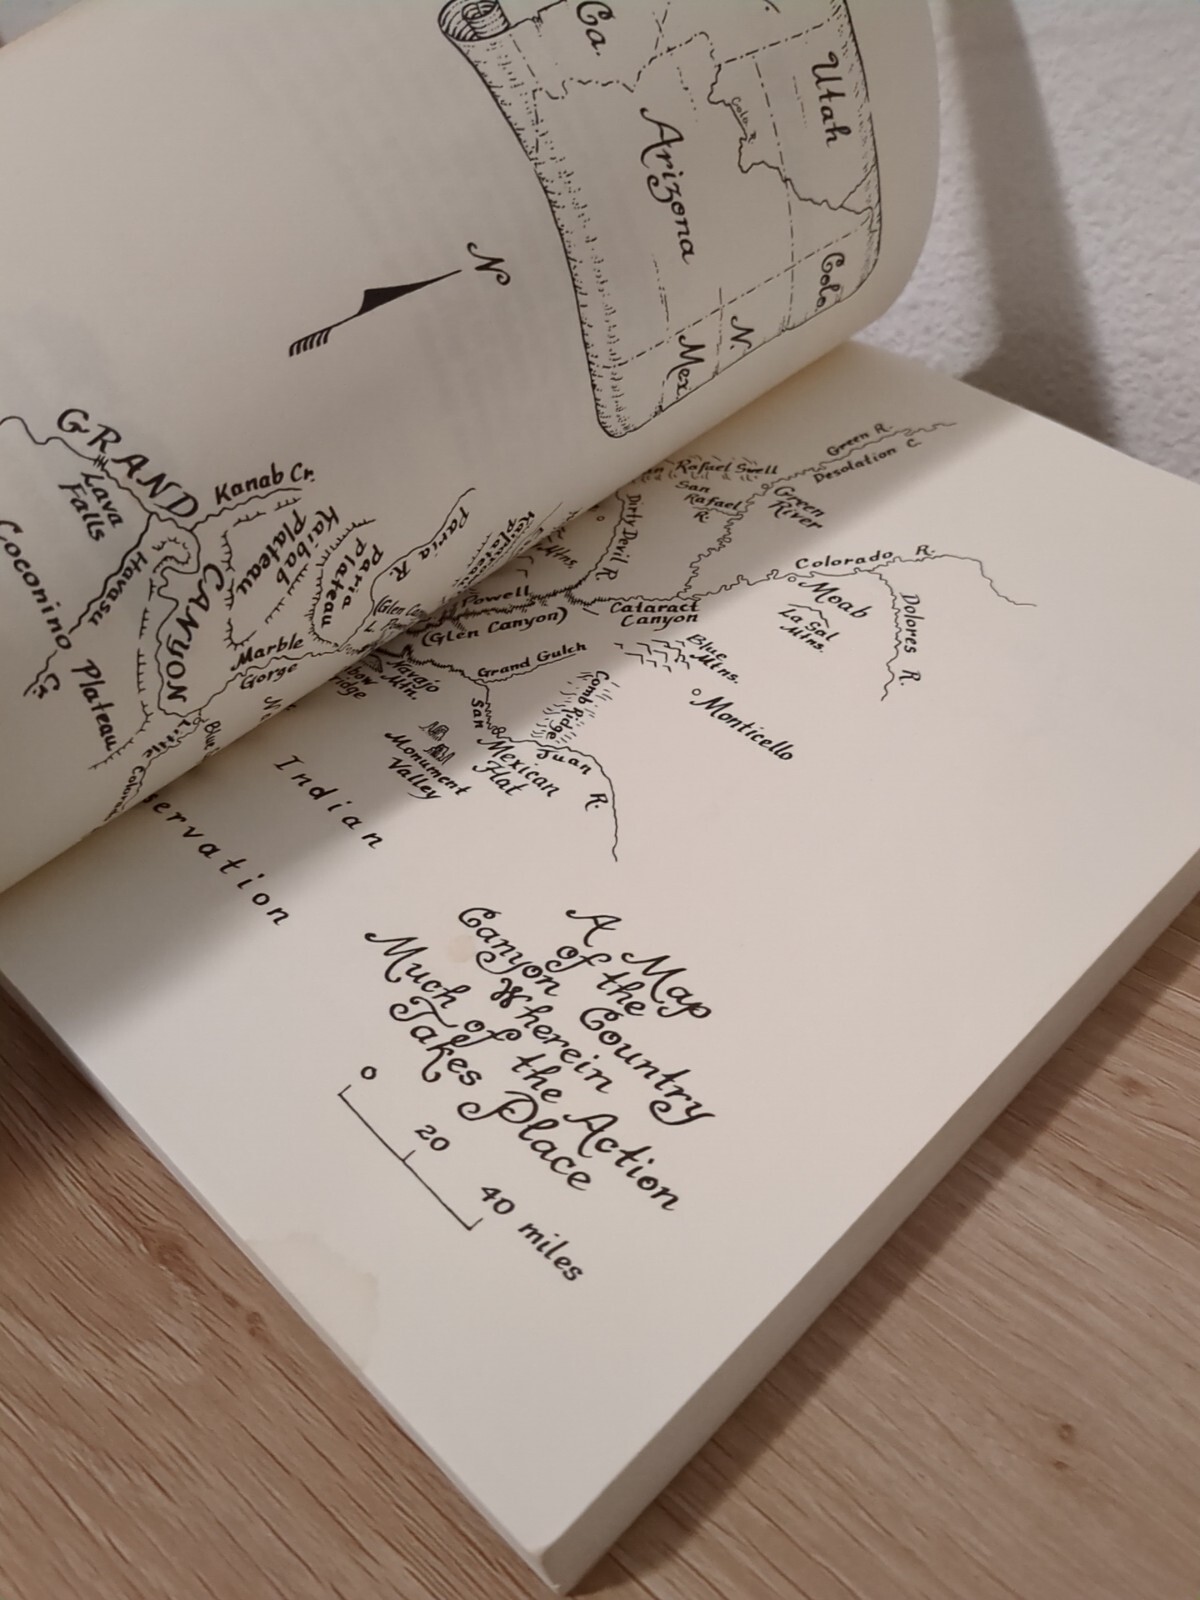 Ca.
Utah
Colo. R.
Arizona
Colo.
N.
Mex.
N
GRAND
CANYON
Lava
Falls
Kanab Cr.
Kaibab
Plateau
Paria
Plateau
Paria R.
Coconino Plateau
Havasu
Cr.
Marble
Gorge
Little Colora
Blue
(Glen Can
Rafael Swell
San
Rafael
R.
Green R.
Desolation C.
Green
River
Dirty Devil R.
Mtns.
Powell
(Glen Canyon)
Cataract
Canyon
Colorado R.
Moab
La Sal
Mtns.
Dolores R.
Blue
Mtns.
Monticello
Grand Gulch
Comb Ridge
Navajo
Mtn.
bow
ridge
San Juan R.
Mexican
Hat
Monument
Valley
Indian
servation
A Map
of the
Canyon Country
Wherein
Much of the Action
Takes Place
0
20
40 miles